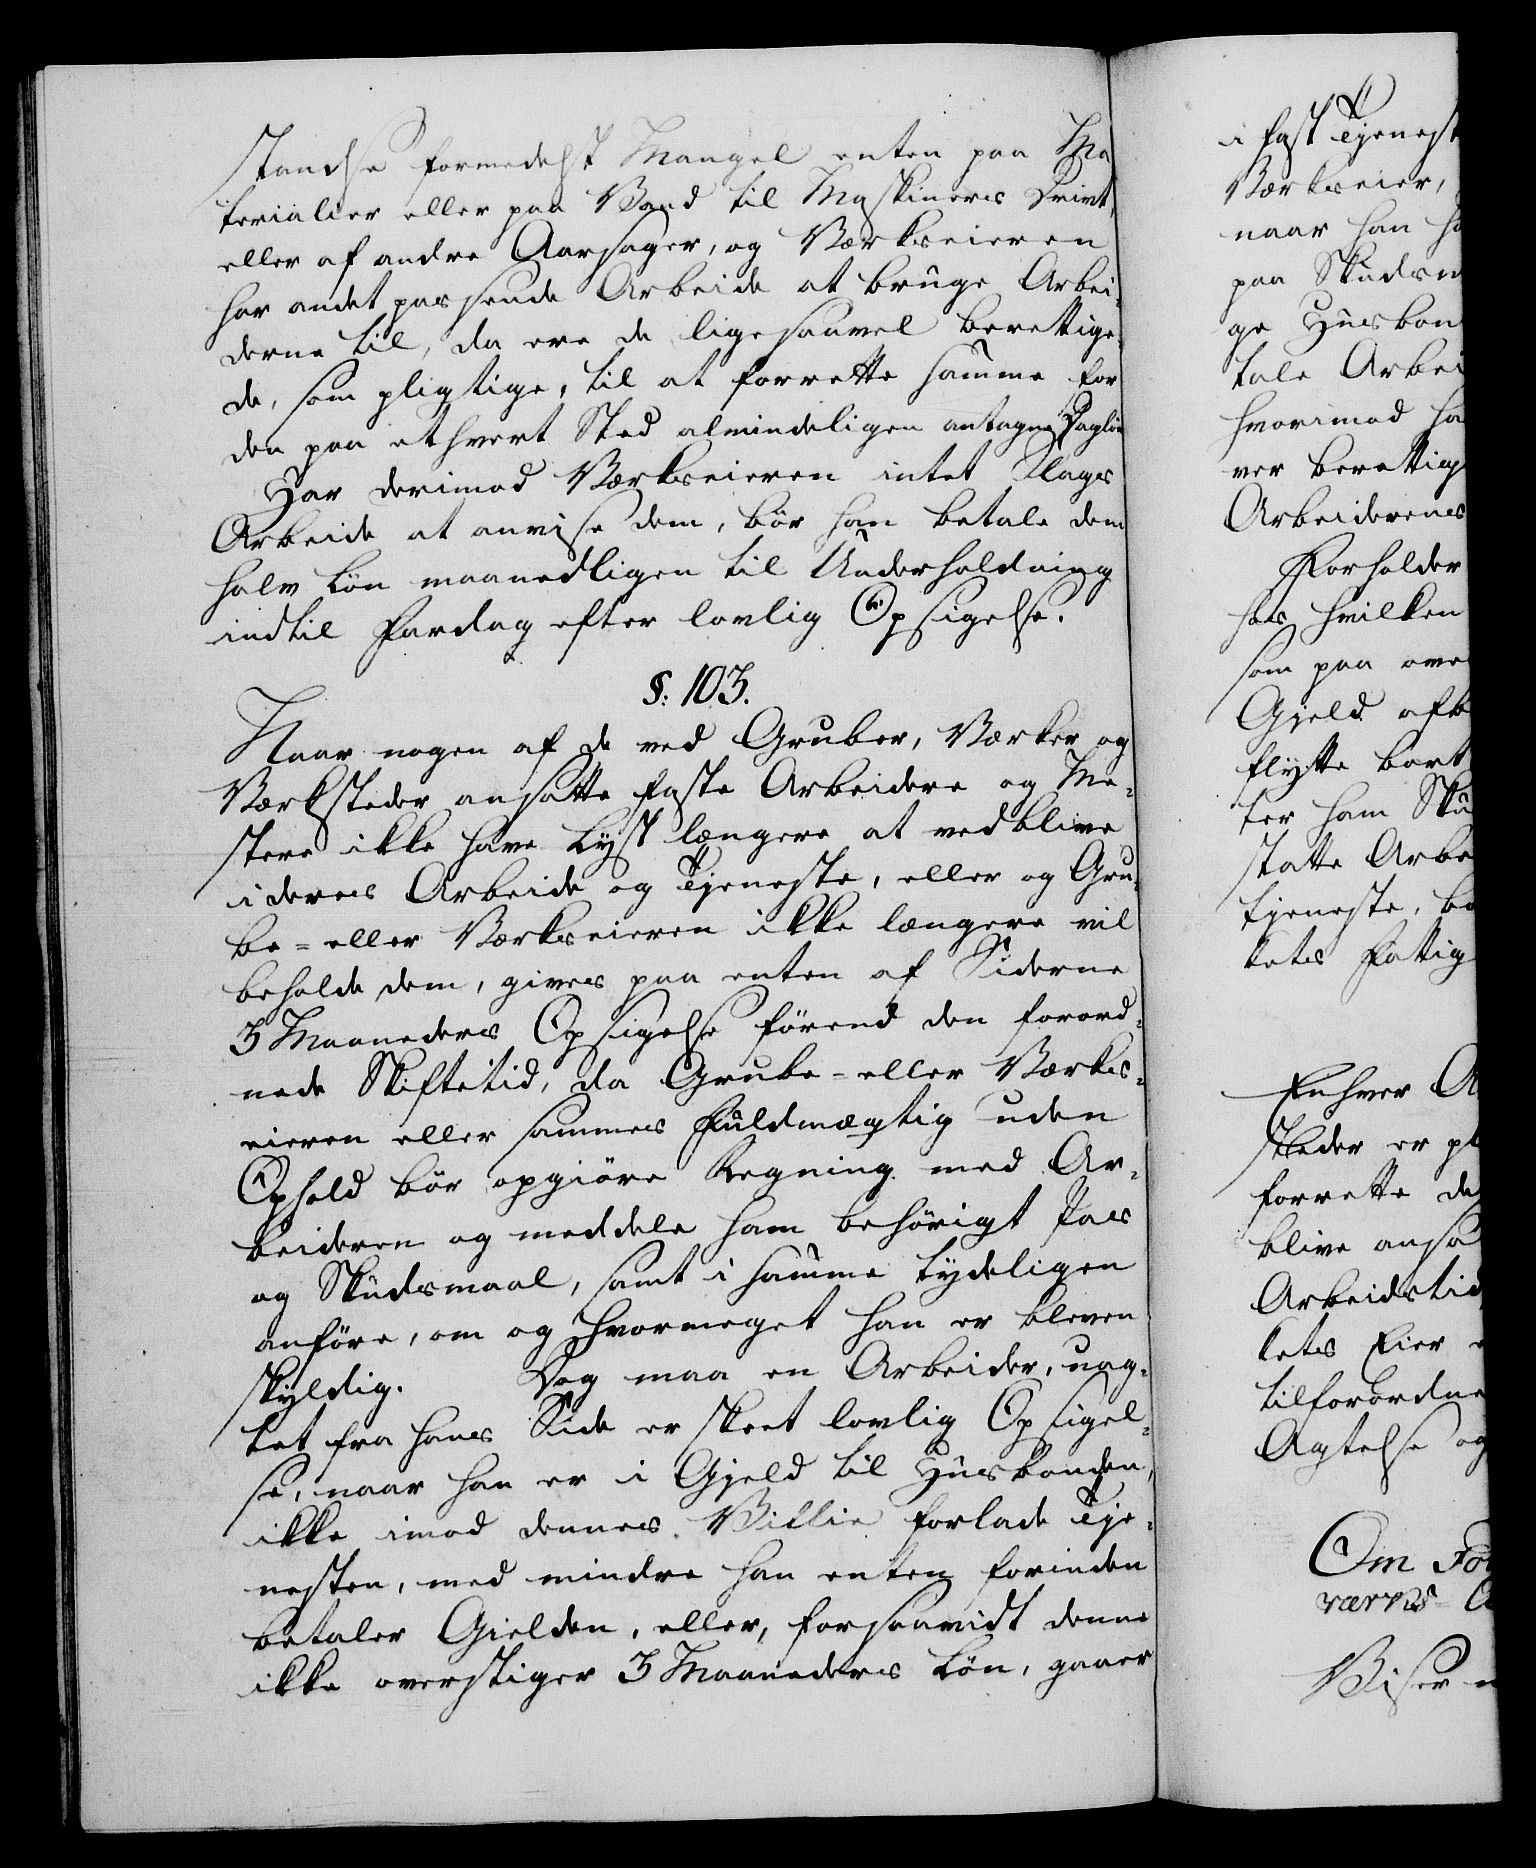 standse formedelst Mangel enten paa Ma
terialier eller paa Vand til Maskiners Drivt,
eller af andre Aarsager, og Værkseieren
har andet passende Arbeide at bruge Arbei-
derne til, da ere de ligesaavel berettige-
de, som pligtige, til at forrette samme for
den paa ethvert Sted almindeligen antagne Dagløn
Har derimod Værkseieren intet Slags
Arbeide at anvise dem, bör han betale dem
halv Løn maanedligen til Underholdning
indtil Fardag efter lovlig Opsigelse.
§. 103.
Naar nogen af de ved Gruber, Værker og
Værksteder ansatte faste Arbeidere og Me-
stere ikke have Lyst længere at vedblive
i deres Arbeide og Tjeneste, eller og Gru-
be- eller Værkseieren ikke længere vil
beholde dem, gives paa enten af Siderne
3 Maaneders Opsigelse förend den forord-
nede Skiftetid, da Grube- eller Værks-
eieren eller sammes Fuldmægtig uden
Ophold bör opgiöre Regning med Ar-
beideren og meddele ham behörigt Pas
og Skudsmaal, samt i samme tydeligen
anföre, om og hvormeget han er bleven
skyldig. Dog maa en Arbeider, uag-
tet fra hans Side er skeet lovlig Opsigel-
se, naar han er i Gjeld til Husbonden,
ikke imod dennes Villie forlade Tje-
nesten, med mindre han enten forinden
betaler Gielden, eller, forsaavidt denne
ikke overstiger 3 Maaneders Løn, gaaer
i fast Tjenest
Værkseier,
naar han ha
paa Skudsm
ge Husbon
tale Arbei
hvorimod ha
ver berettig
Arbeiderenes
Forholder
hos hvilken
som paa ove
Gjeld afb
flytte bort
ter ham Sku
statte Arbe
tjeneste, be
kets Fattig
Enhver A
steder er pl
forrette de
blive ansa
Arbeidstid
kets Eier e
tilforordne
Agtelse og
Om For
værks- A
Viser n